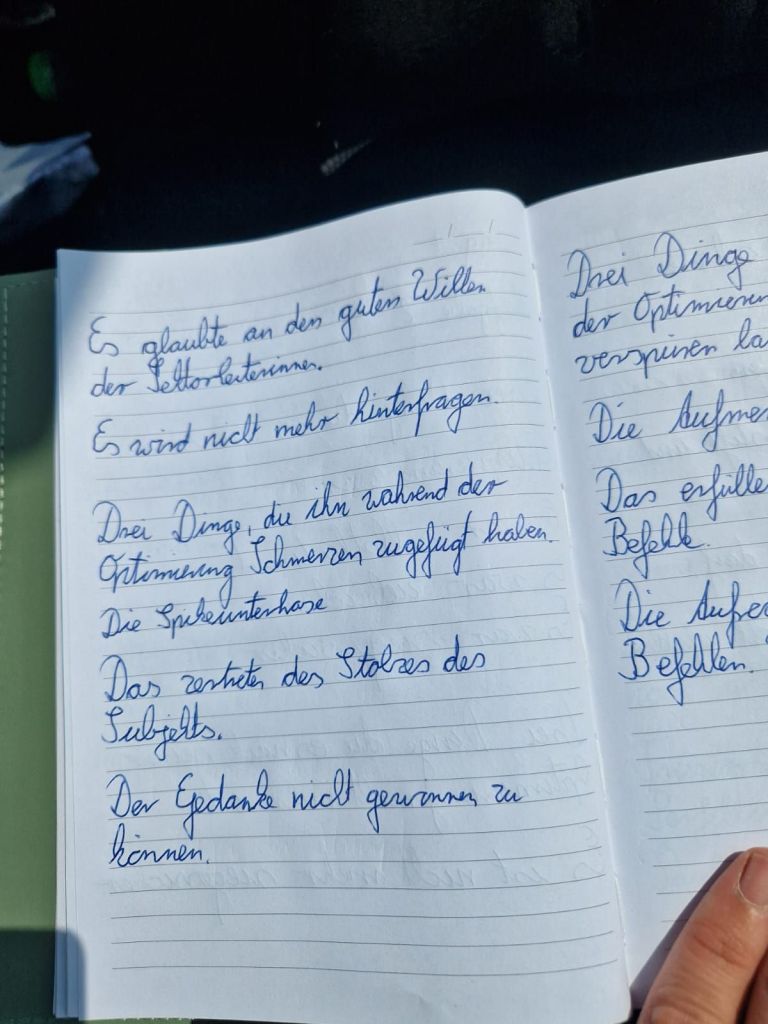 Es glaubte an den guten Willen
der Sektorleiterinnen.
Es wird nicht mehr hinterfragen.
Drei Dinge, du ihn wahrend der
Optimierung Schmerzen zugefügt haben.
Die
Das zertreten des Stolzes des
Subjekts.
Der Gedanke nicht gewinnen zu
können.
Drei Dinge
der Optimierun
verspüren la
Die Aufmer
Das erfülle
Befehle.
Die
Befehlen.